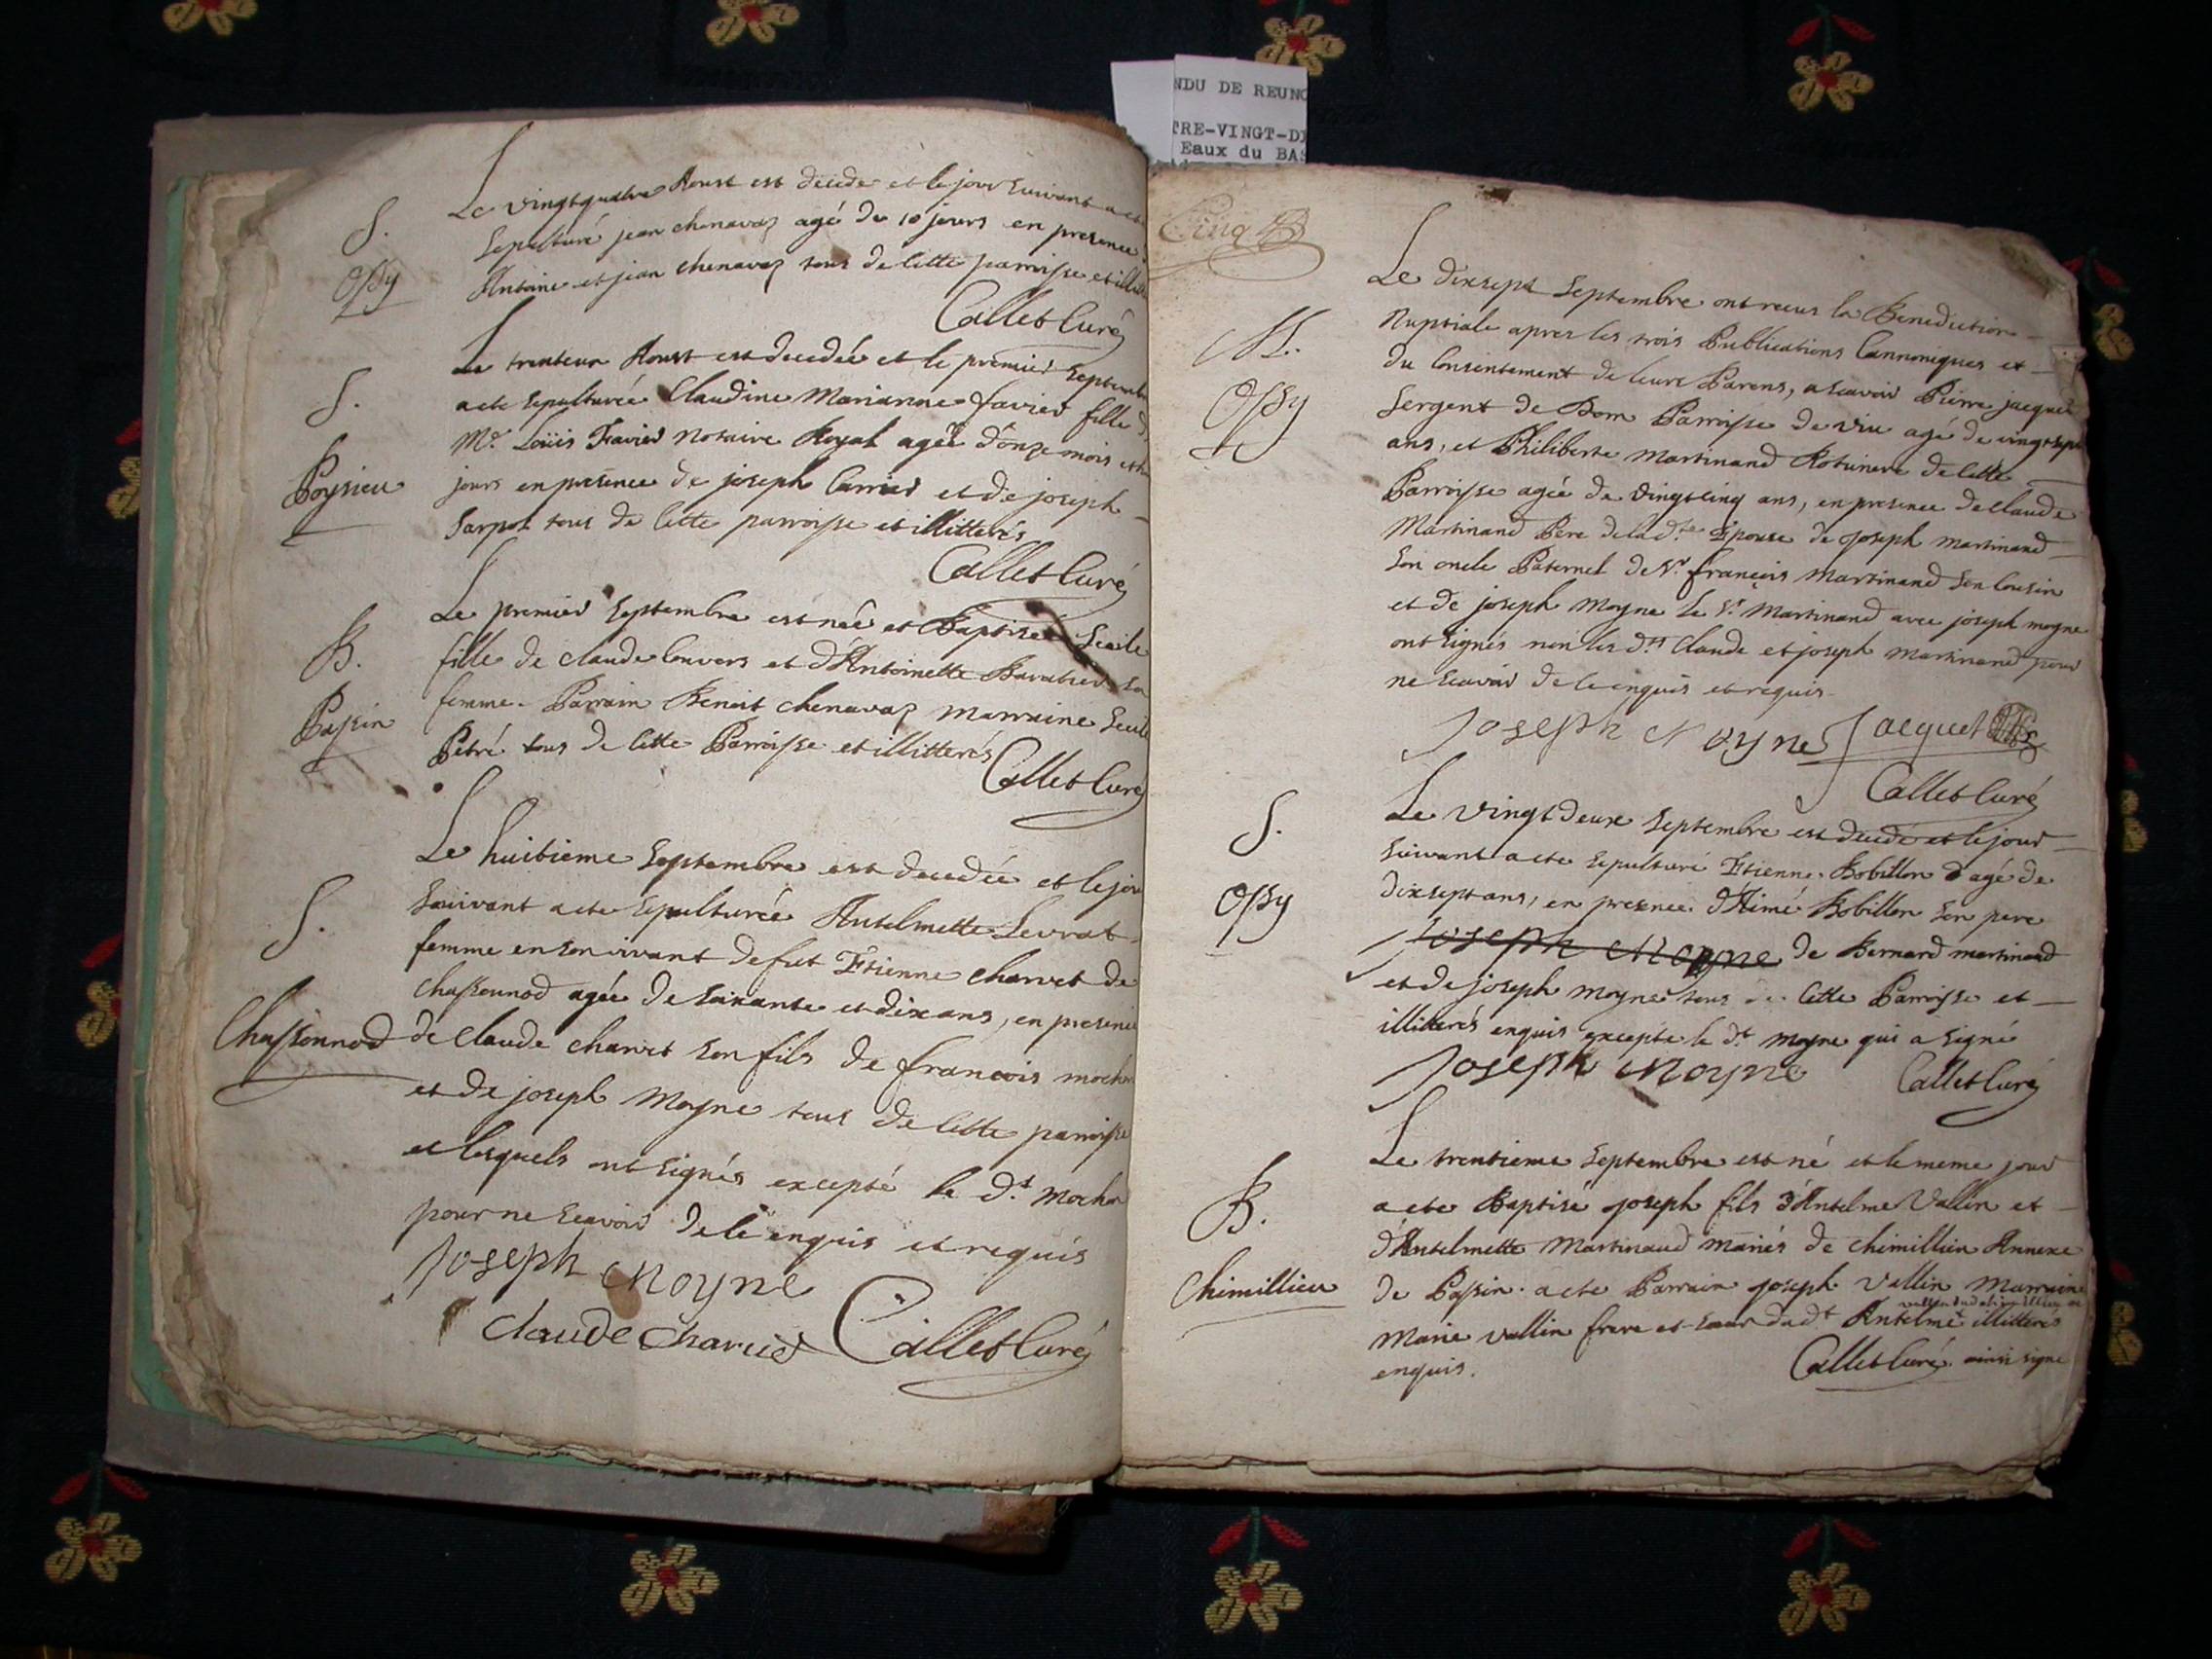 NDU DE REUNO
TRE-VINGT-DI
Eaux du BAS
Le vingtquatre Aoust est decede et le jour suivant a ete
S.
sepulturé jean chenavaz agé de 10 jours en presence
Ossy
Antoine et jean chenavaz tous de cette parroisse et
Callet Curé
Le trenteun Aoust est decedée et le premier septembre
S.
a ete sepulturée Claudine Marianne favier fille
Mr. Loüis Favier Notaire Royal agée d'onze mois
Poysieu
jours en presence de joseph Carrier et de joseph
Sarpol tous de cette parroisse et illitterés
Callet Curé
Le premier septembre est née et Baptisée
B.
fille de claude et d'Antoinette sa
Passin
femme. Parrain Benoit chenavaz marraine
Petré tous de cette Parroisse et illitterés
Callet Curé
Le huitieme septembre est decedée et le jour
S.
suivant a ete sepulturée Antelmette Levrat
femme en son vivant de fut Etienne charvet de
chassonnod agée de soixante et dix ans, en presence
Chassonnod
de claude charvet son fils de francois
et de joseph moyne tous de cette parroisse
et lesquels ont signés excepté le dt.
pour ne scavoir de ce enquis et requis
Joseph Moyne
Claude Charvet
Callet Curé
Cinq
Le dixsept septembre ont recus la Benediction
M.
Nuptiale apres les trois Publications Cannoniques et
du Consentement de leurs Parens, a scavoir Pierre jacquet
Ossy
sergent de Dom Parroisse de viu agé de vingt sept
ans, et Philiberte martinand de cette
Parroisse agée de vingt cinq ans, en presence de claude
Martinand Pere de lad.te Epouse de joseph martinand
son oncle Paternel de Sr. françois martinand son Cousin
et de joseph moyne le Sr. martinand avec joseph moyne
ont signés non les dts. Claude et joseph martinand pour
ne scavoir de ce enquis et requis
Joseph Moyne Jacquet
Callet Curé
Le vingt deux septembre est decedé et le jour
S.
suivant a ete sepulturé Etienne Bobillon agé de
Ossy
dixsept ans, en presence d'Aimé Bobillon son pere
Joseph Moyne de Bernard martinand
et de joseph moyne tous de cette Parroisse et
illiterés enquis excepté le dt. moyne qui a signé
Joseph Moyne
Callet Curé
Le trentieme septembre est né et le meme jour
B.
a ete Baptisé joseph fils d'Antelme Vallin et
d'Antelmette Martinaud mariés de chimillien Annexe
Chimillieu
de Passin. a ete Parrain joseph vallin marraine
marie vallin frere et soeur dudt. Antelme illitterés
enquis.
Callet Curé. ainsi signé